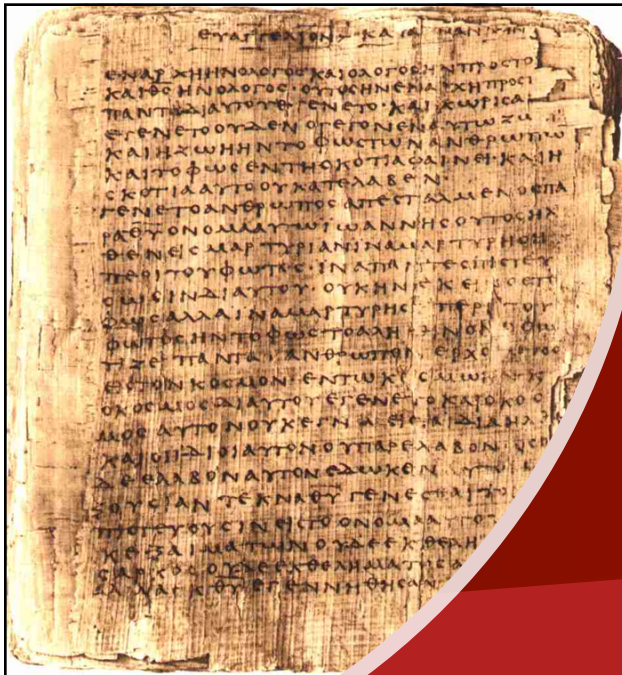 ΕΥΑΓΓΕΛΙΟΝ ΚΑΤΑ ΙΩΑΝΝΗΝ
ΕΝΑΡΧΗΗΝΟΛΟΓΟCΚΑΙΟΛΟΓΟCΗΝΠΡΟCΤΟ
ΚΑΙΘCΗΝΟΛΟΓΟC·ΟΥΤΟCΗΝΕΝΑΡΧΗΠΡΟC
ΠΑΝΤΑΔΙΑΥΤΟΥΕΓΕΝΕΤΟ·ΚΑΙΧΩΡΙCΑ
ΕΓΕΝΕΤΟΟΥΔΕΝΟΓΕΓΟΝΕΝΑΥΤΩΖΩ
ΚΑΙΗΖΩΗΗΝΤΟΦΩCΤΩΝΑΝΘΡΩΠΩ
ΚΑΙΤΟΦΩCΕΝΤΗCΚΟΤΙΑΦΑΙΝΕΙ·ΚΑΙΗ
CΚΟΤΙΑΑΥΤΟΟΥΚΑΤΕΛΑΒΕΝ·
ΓΕΝΕΤΟΑΝΘΡΩΠΟCΑΠΕCΤΑΛΜΕΝΟCΠΑ
ΡΑΘΥΟΝΟΜΑΑΥΤΩΙΩΑΝΝΗCΟΥΤΟCΗΛ
ΘΕΝΕΙCΜΑΡΤΥΡΙΑΝΙΝΑΜΑΡΤΥΡΗCΗ
ΠΕΡΙΤΟΥΦΩΤΟC·ΙΝΑΠΑΝΤΕCΠΙCΤΕΥ
CΩCΙΝΔΙΑΥΤΟΥ·ΟΥΚΗΝΕΚΕΙΝΟCΤΟ
ΦΩCΑΛΛΑΙΝΑΜΑΡΤΥΡΗCΗΠΕΡΙΤΟΥ
ΦΩΤΟCΗΝΤΟΦΩCΤΟΑΛΗΘΙΝΟΝΟΦΩ
ΤΙΖΕΙΠΑΝΤΑΑΝΘΡΩΠΟΝΕΡΧΟΜΕΝΟ
ΕΙCΤΟΝΚΟCΜΟΝ·ΕΝΤΩΚΟCΜΩΗΝΚ
ΟΚΟCΜΟCΔΙΑΥΤΟΥΕΓΕΝΕΤΟΚΑΙΟΚΟC
ΜΟCΑΥΤΟΝΟΥΚΕΓΝΩΕΙCΤΑΙΔΙΑΗΛ
ΚΑΙΟΙΙΔΙΟΙΑΥΤΟΝΟΥΠΑΡΕΛΑΒΟΝ·ΟCΟ
ΔΕΕΛΑΒΟΝΑΥΤΟΝΕΔΩΚΕΝΑΥΤΟΙ
ΞΟΥCΙΑΝΤΕΚΝΑΘΥΓΕΝΕCΘΑΙΤΟ
ΠΙCΤΕΥΟΥCΙΝΕΙCΤΟΟΝΟΜΑΑΥΤΟ
ΚΕΞΑΙΜΑΤΩΝΟΥΔΕΕΚΘΕΛΗ
CΑΡΚΟCΟΥΔΕΕΚΘΕΛΗΜΑΤΟCΑ
ΑΛΛΑΕΚΘΥΕΓΕΝΝΗΘΗCΑΝ